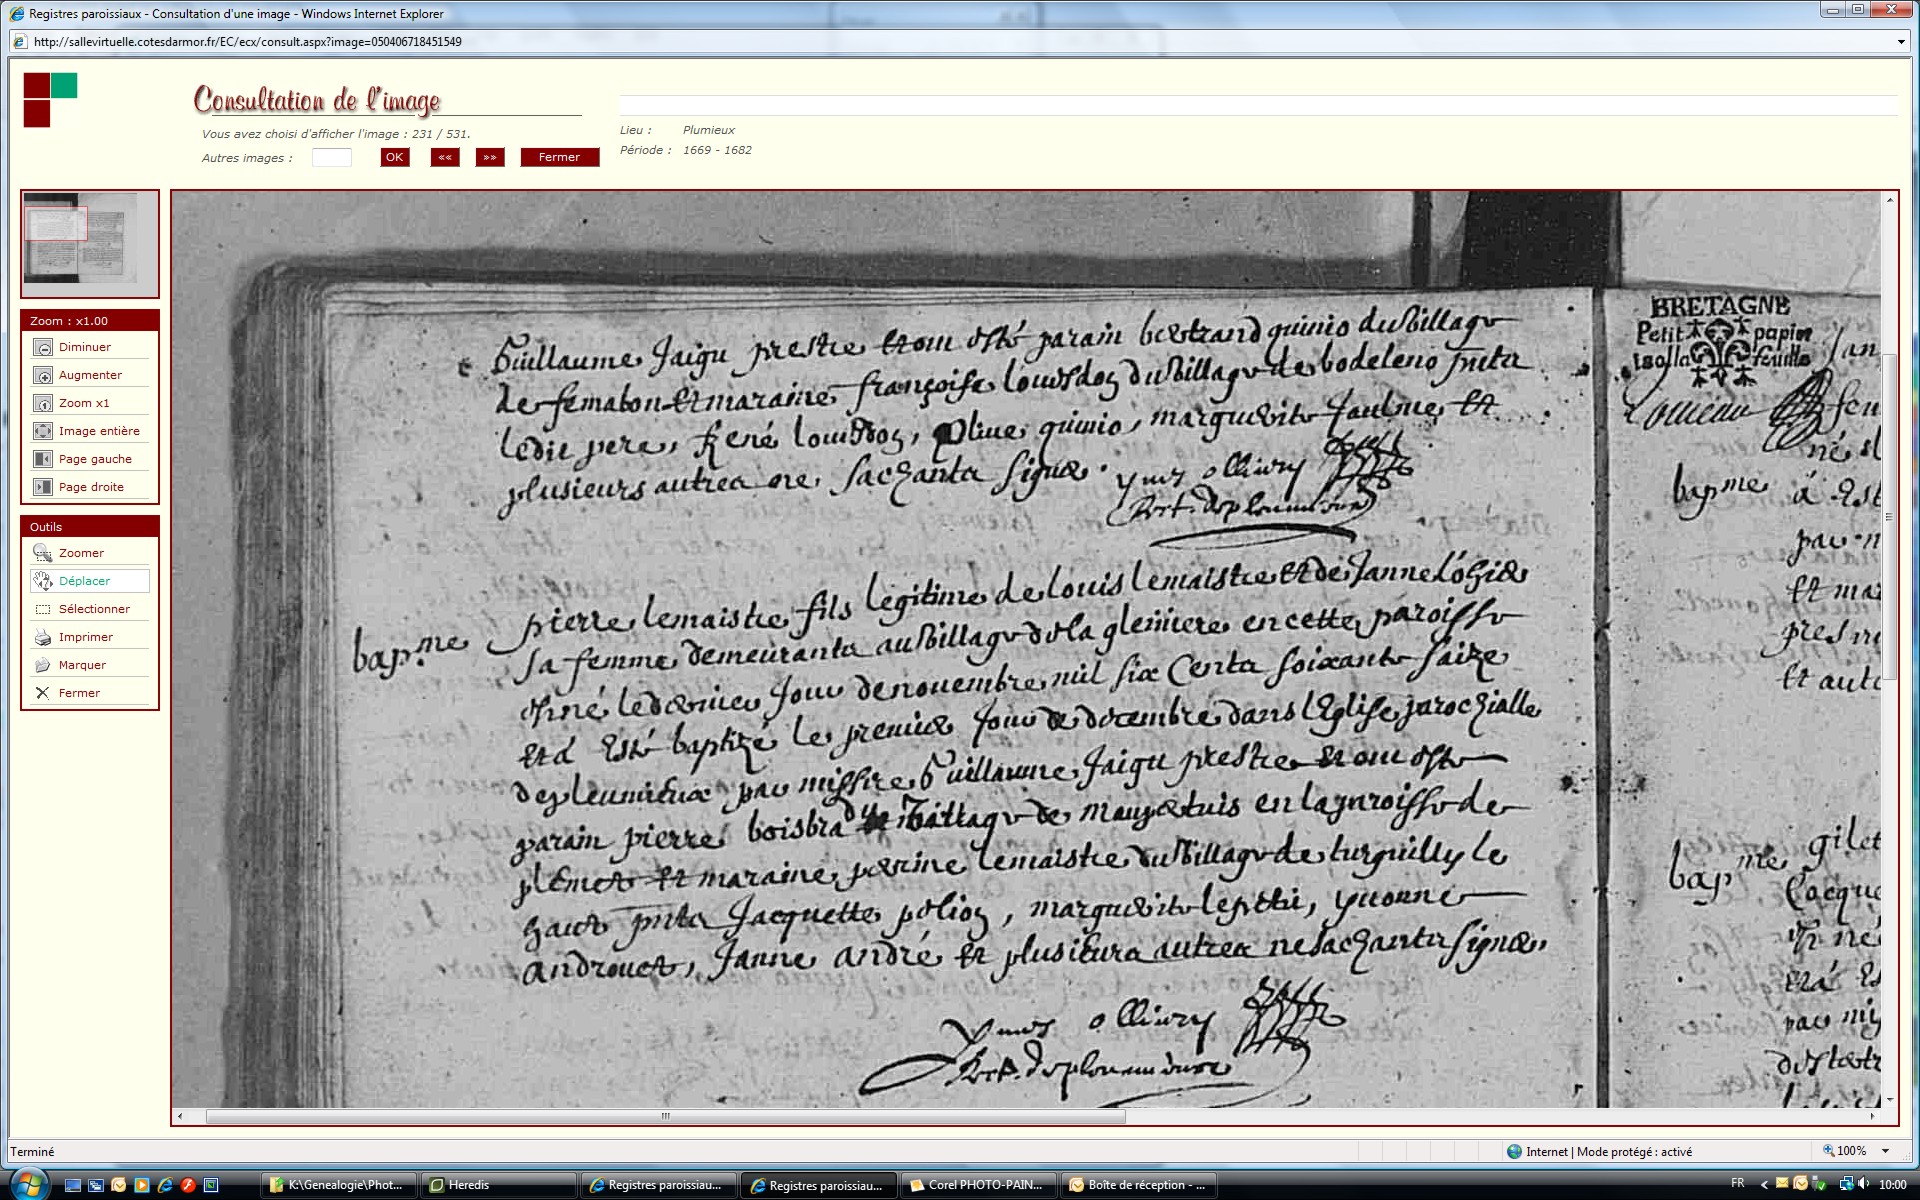 Registres paroissiaux - Consultation d'une image - Windows Internet Explorer
http://sallevirtuelle.cotesdarmor.fr/EC/ecx/consult.aspx?image=050406718451549
Consultation de l'image
Vous avez choisi d'afficher l'image : 231 / 531.
Autres images :
OK
««
»»
Fermer
Lieu : Plumieux
Période : 1669 - 1682
Zoom : x1.00
Diminuer
Augmenter
Zoom x1
Image entière
Page gauche
Page droite
Outils
Zoomer
Déplacer
Sélectionner
Imprimer
Marquer
Fermer
Guillaume Jaigu prestre et ont esté parain bertrand quinio du village
de femabon et maraine françoise du village de bodeleno
ledit pere, René, olive quinio, marguerite et
plusieurs autres ne sachants signer. yves olliury
bapme
pierre lemaistre fils legitime de louis lemaistre et de Janne
sa femme demeurants au village de la gleniere en cette paroisse
né le dernier jour de nouembre mil six cents soixante saize
et a esté baptizé le premier jour de decembre dans l'Eglise parochialle
de pleumieux par missire Guillaume Jaigu prestre et ont esté
parain pierre boisbra du village de maupertuis en la paroisse de
plemet et maraine perine lemaistre du village de turquilly le
haut pnts Jacquette, marguerite lepetit, yvonne
androuet, Janne andré et plusieurs autres ne sachants signer,
yves olliury
BRETAGNE
Petit papier
feuille
bapme
bapme gilet
Terminé
Internet | Mode protégé : activé
100%
K:\Genealogie\Phot...
Heredis
Registres paroissiau...
Registres paroissiau...
Corel PHOTO-PAIN...
Boîte de réception - ...
FR
10:00